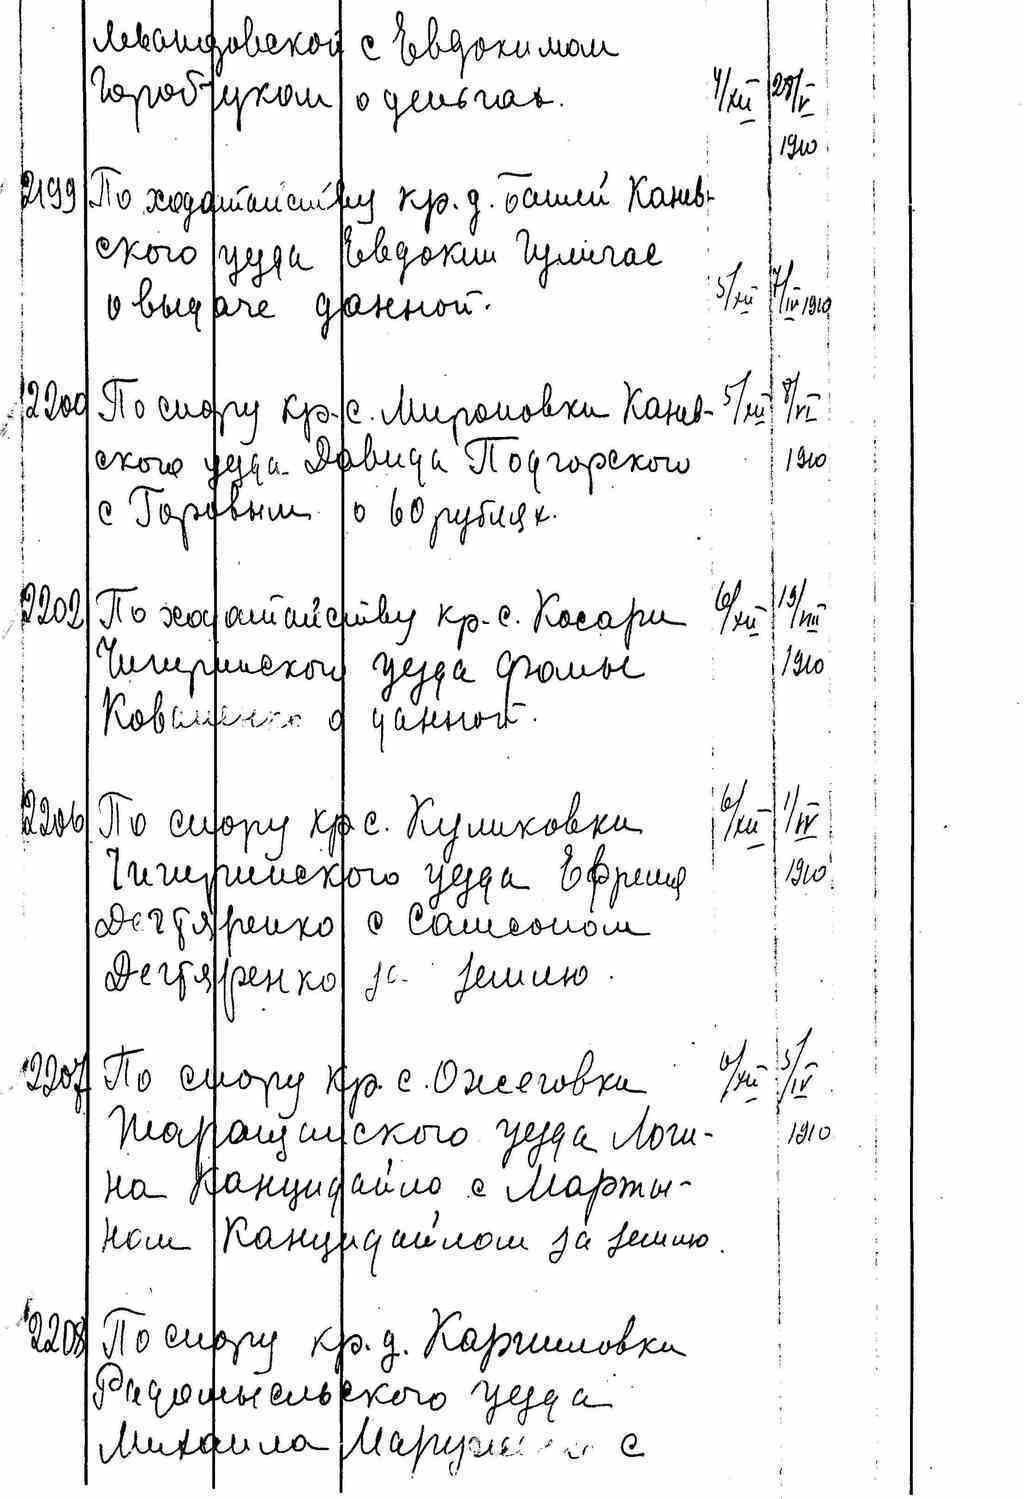 Левандовской с Евдокимом
Горобчуком о деньгах. 4/XII 28/V
1910
2199 По ходатайству кр. д. Канев-
ского уезда Евдокии
о выдаче данной. 5/XII 7/IV 1910
2200 По спору кр. с. Мироновки Канев- 5/XII 8/VI
ского уезда Давида Подгорского 1910
с Горовым о 60 рублях.
2202 По ходатайству кр. с. Косари 6/XII 19/VIII
Чигиринского уезда Фомы 1910
Коваленко о данной.
2206 По спору кр с. Куликовки 6/XII 1/IV
Чигиринского уезда Ефрема 1910
Дегтяренко с Самсоном
Дегтяренко за землю.
2207 По спору кр. с. Ожеговки 6/XII 5/IV
Таращанского уезда Логи- 1910
на Канцидайло с Марты-
ном Канцидайлом за землю.
2208 По спору кр. д.
Радомысльского уезда
Михаила с